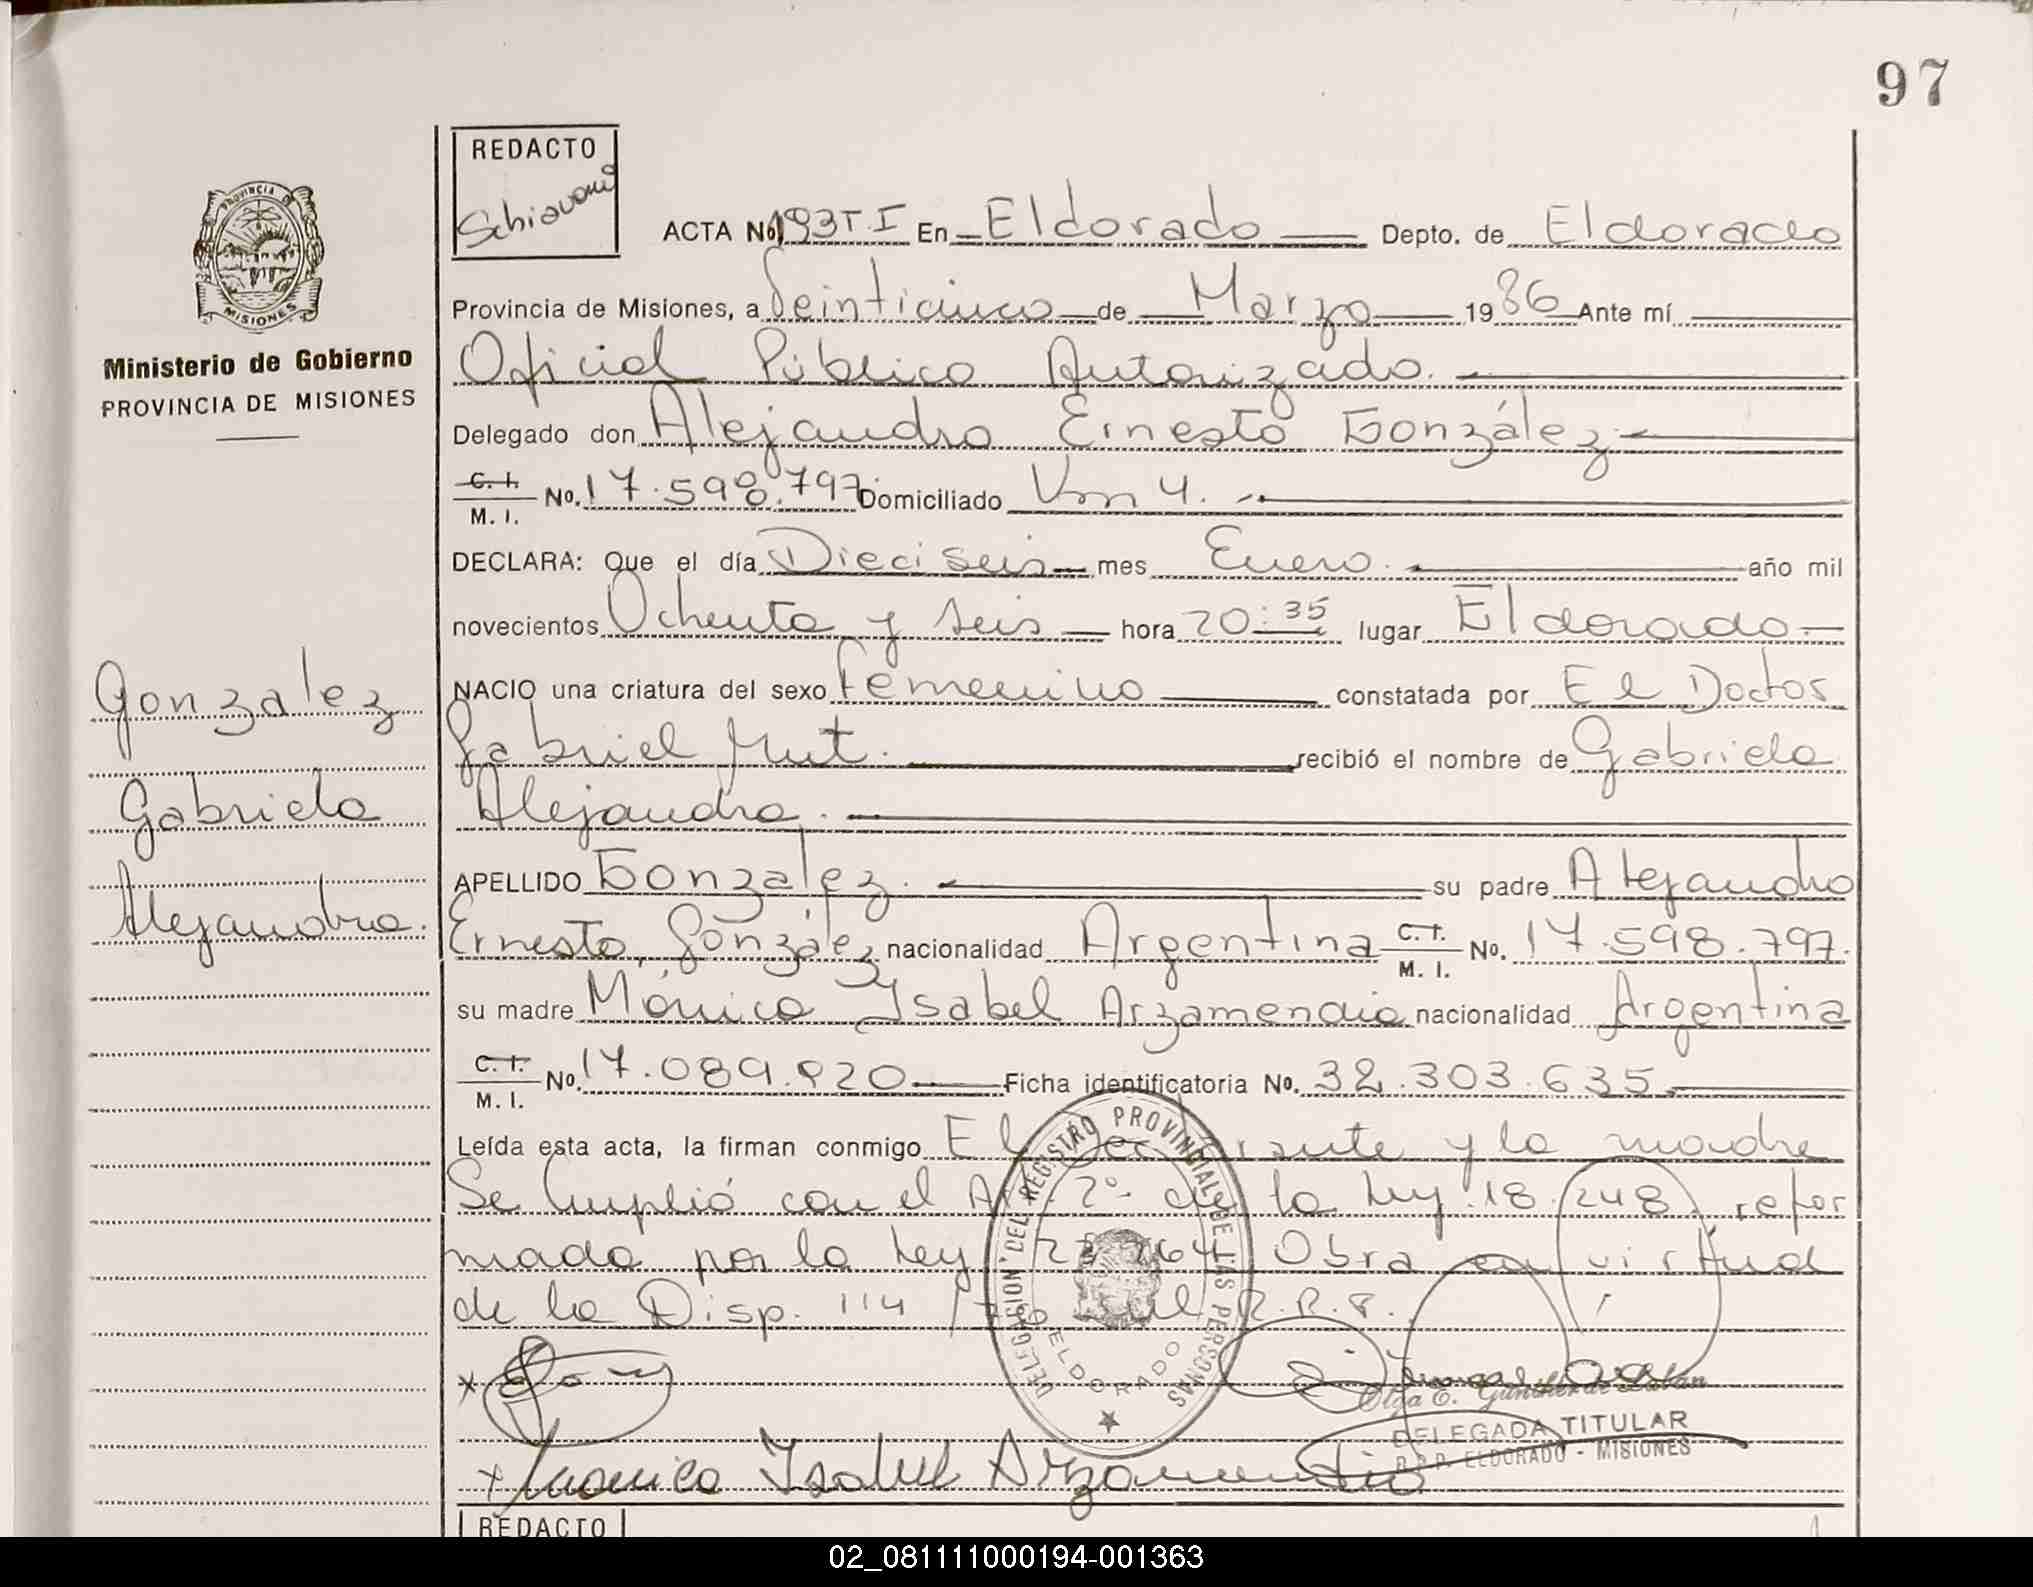 97
REDACTO
Schiavoni
PROVINCIA DE
MISIONES
Ministerio de Gobierno
PROVINCIA DE MISIONES
ACTA No. 193 T.I En Eldorado Depto. de Eldorado
Provincia de Misiones, a Veinticinco de Marzo 1986 Ante mí
Oficial Público Autorizado.
Delegado don Alejandro Ernesto González
C. I. M. I. No. 17.598.797 Domiciliado Km 4.
DECLARA: Que el día Dieciseis mes Enero. año mil
novecientos Ochenta y seis hora 20:35 lugar Eldorado
NACIO una criatura del sexo femenino constatada por El Doctor
Gabriel Mut. recibió el nombre de Gabriela
Alejandra.
APELLIDO Gonzalez. su padre Alejandro
Ernesto, González nacionalidad Argentina C. I. M. I. No. 17.598.797.
su madre Mónica Ysabel Arzamendia nacionalidad Argentina
C. I. M. I. No. 17.089.820 Ficha identificatoria No. 32.303.635
Leída esta acta, la firman conmigo El declarante y la madre
Se cumplió con el Art 2º de la Ley 18.248 refor
mada por la Ley 23.264 Obra en virtud
de la Disp. 114 del R.P.P.
Gonzalez
Gabriela
Alejandra.
DELEGACION DEL REGISTRO PROVINCIAL DE LAS PERSONAS
ELDORADO
Olga E. Günther de
DELEGADA TITULAR
R.P.P. ELDORADO - MISIONES
x Monica Ysabel Arzamendia
REDACTO
02_081111000194-001363